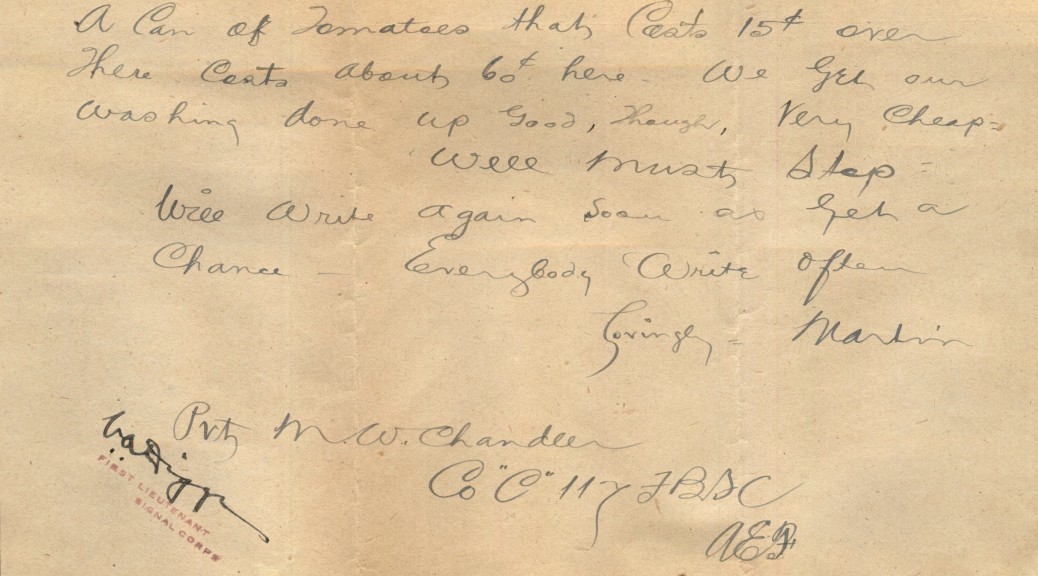 A Can of Tomatoes that Costs 15¢ over
There Costs about 60¢ here - We Get our
washing done up Good, Though, Very Cheap-
Well Must Stop -
Will Write again Soon as Get a
Chance - Everybody Write often
Lovingly - Martin
Pvt M.W. Chandler
Co "C" 117 F B S C
AEF
FIRST LIEUTENANT
SIGNAL CORPS